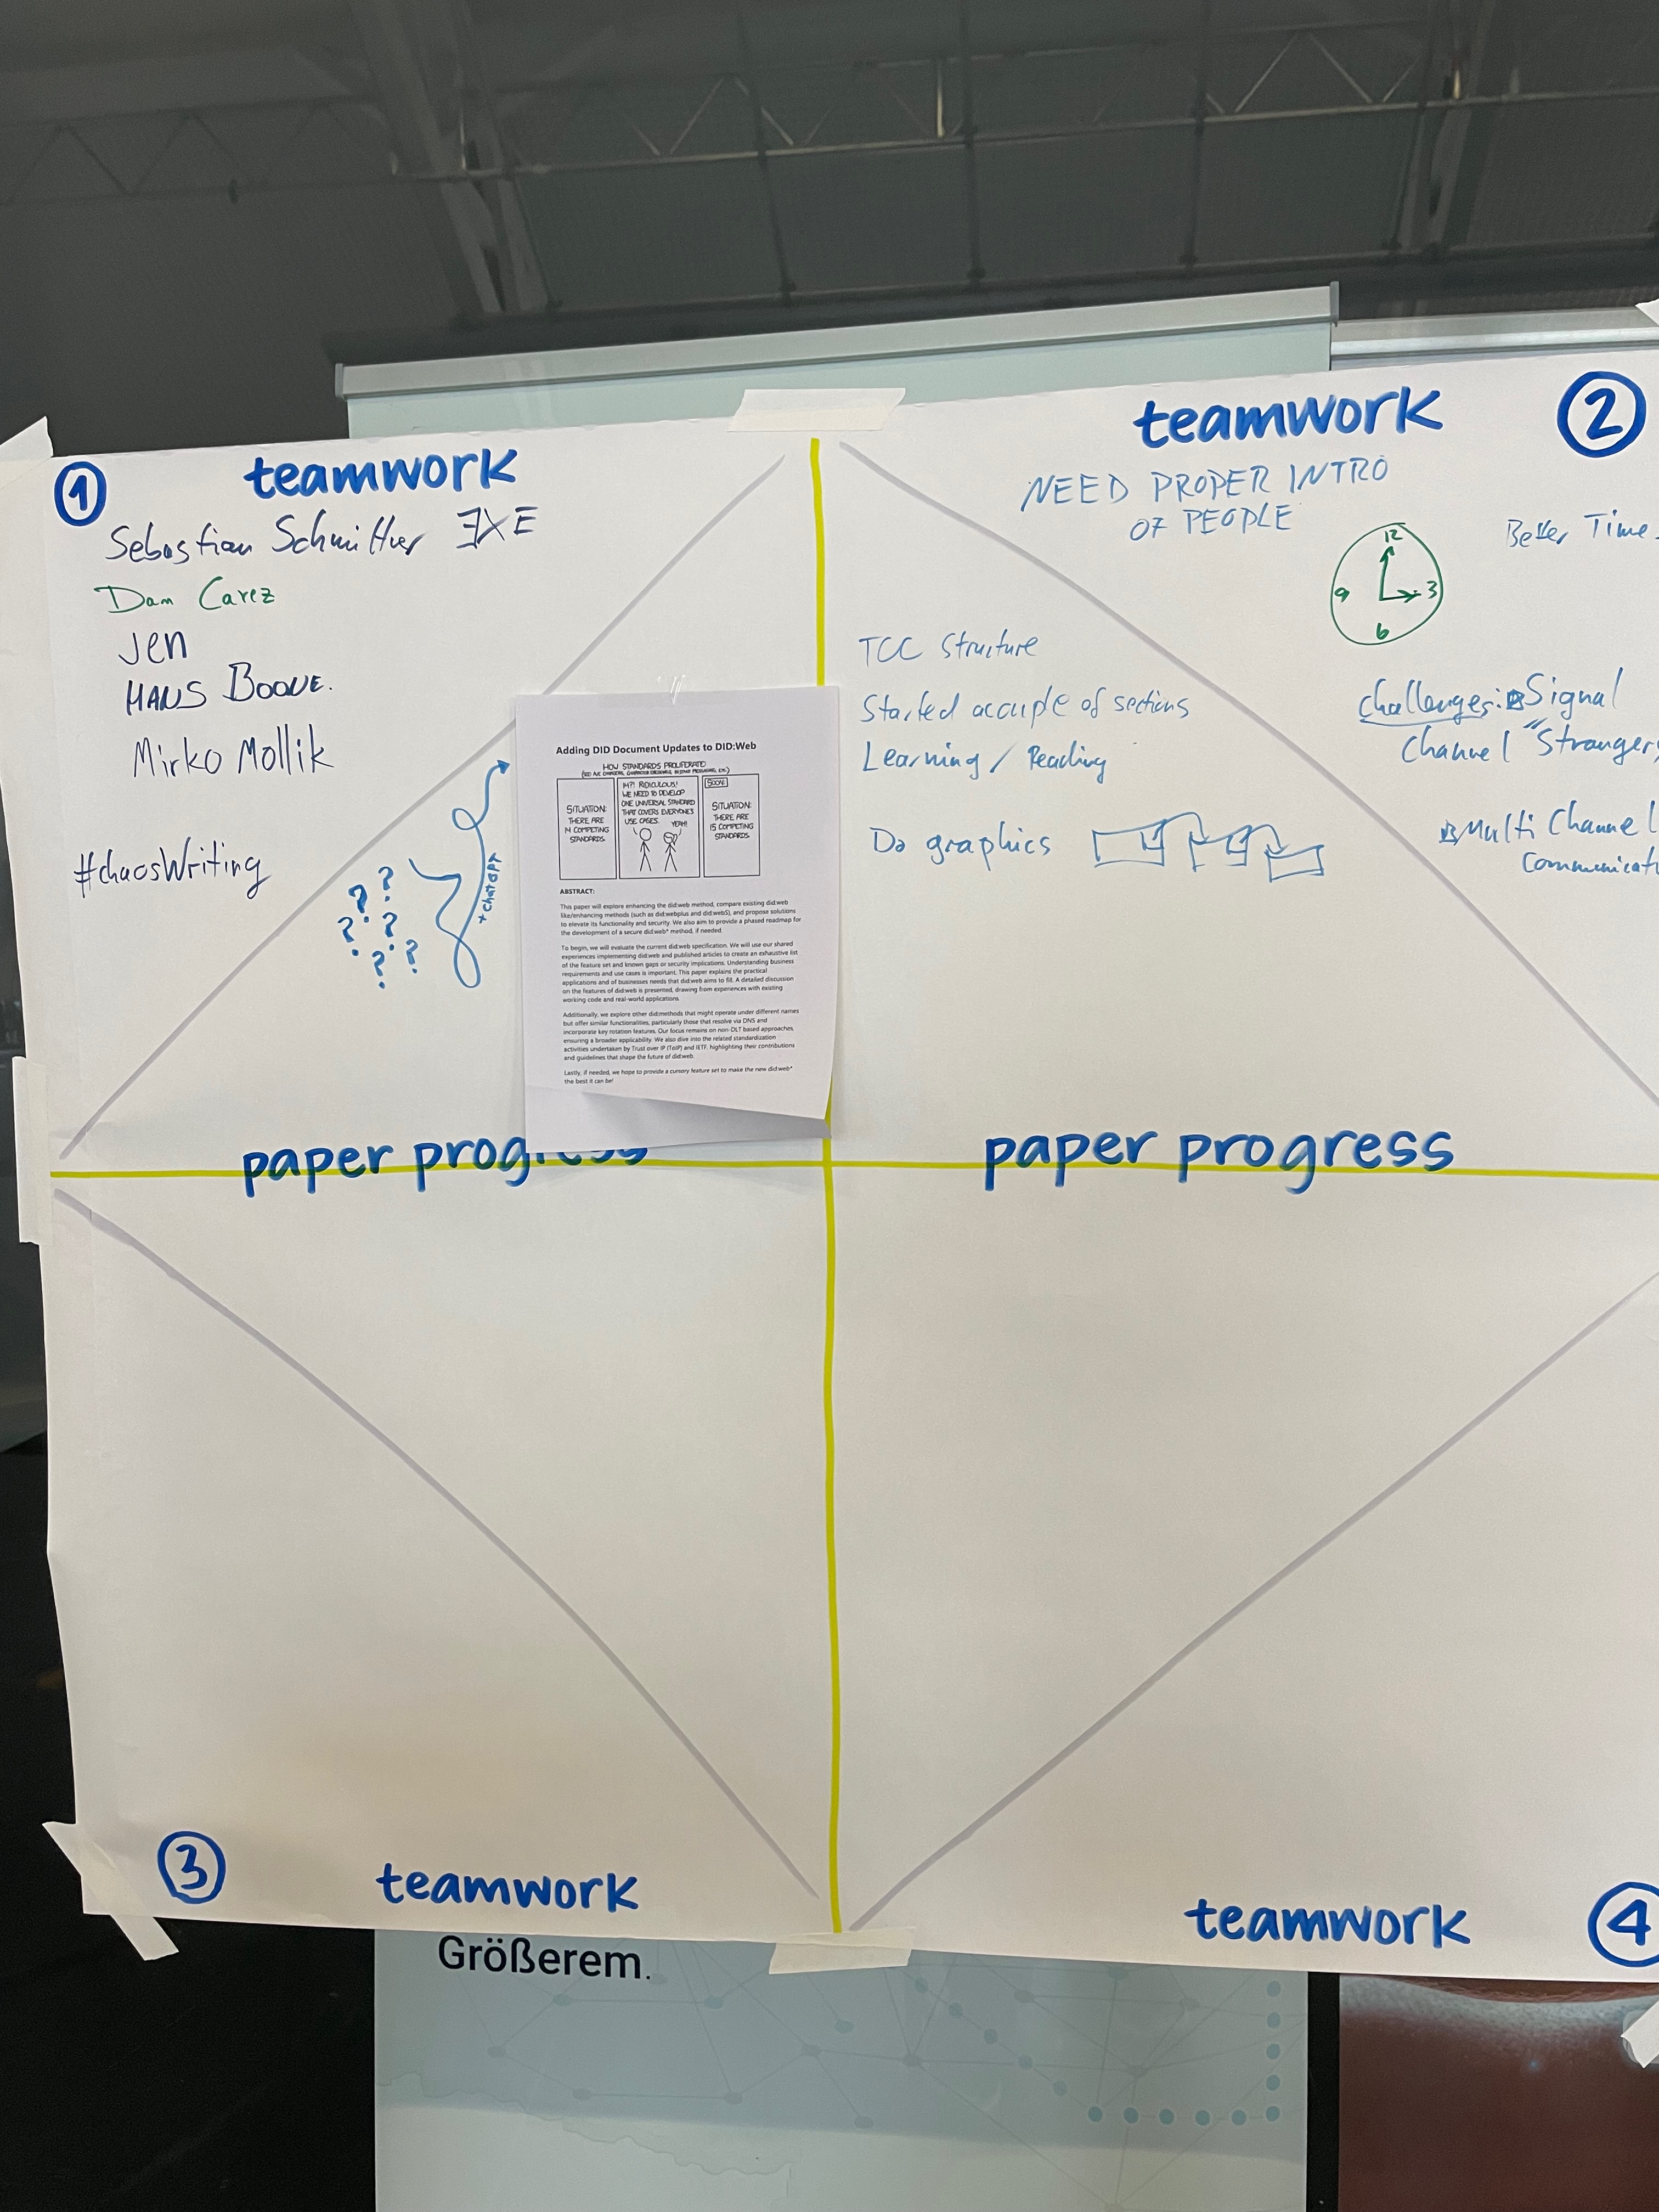 1
teamwork
Sebastian Schmitter EXE
Dam Carez
Jen
HANS BOONE.
Mirko Mollik
#chaosWriting
? ? ? ? ? ?
+ chatGPT
Adding DID Document Updates to DID:Web
HOW STANDARDS PROLIFERATE:
SITUATION:
THERE ARE
14 COMPETING
STANDARDS.
14?! RIDICULOUS!
WE NEED TO DEVELOP
ONE UNIVERSAL STANDARD
THAT COVERS EVERYONE'S
USE CASES.
YEAH!
SOON:
SITUATION:
THERE ARE
15 COMPETING
STANDARDS.
ABSTRACT:
This paper will explore enhancing the did:web method, compare existing did:web
like/enhancing methods (such as did:webplus and did:webS), and propose solutions
to elevate its functionality and security. We also aim to provide a phased roadmap for
the development of a secure did:web* method, if needed.
To begin, we will evaluate the current did:web specification. We will use our shared
experiences implementing did:web and published articles to create an exhaustive list
of the feature set and known gaps or security implications. Understanding business
requirements and use cases is important. This paper explains the practical
applications and of businesses needs that did:web aims to fill. A detailed discussion
on the features of did:web is presented, drawing from experiences with existing
working code and real-world applications.
Additionally, we explore other did:methods that might operate under different names
but offer similar functionalities, particularly those that resolve via DNS and
incorporate key rotation features. Our focus remains on non-DLT based approaches,
ensuring a broader applicability. We also dive into the related standardization
activities undertaken by Trust over IP (ToIP) and IETF, highlighting their contributions
and guidelines that shape the future of did:web.
Lastly, if needed, we hope to provide a cursory feature set to make the new did:web*
the best it can be!
paper progress
teamwork
2
NEED PROPER INTRO
OF PEOPLE
12
3
6
9
Better Time
TCC Structure
Started a couple of sections
Learning / Reading
Do graphics
challenges: Signal
Channel "Stranger
Multi Channel
Communicati
paper progress
3
teamwork
teamwork
4
Größerem.